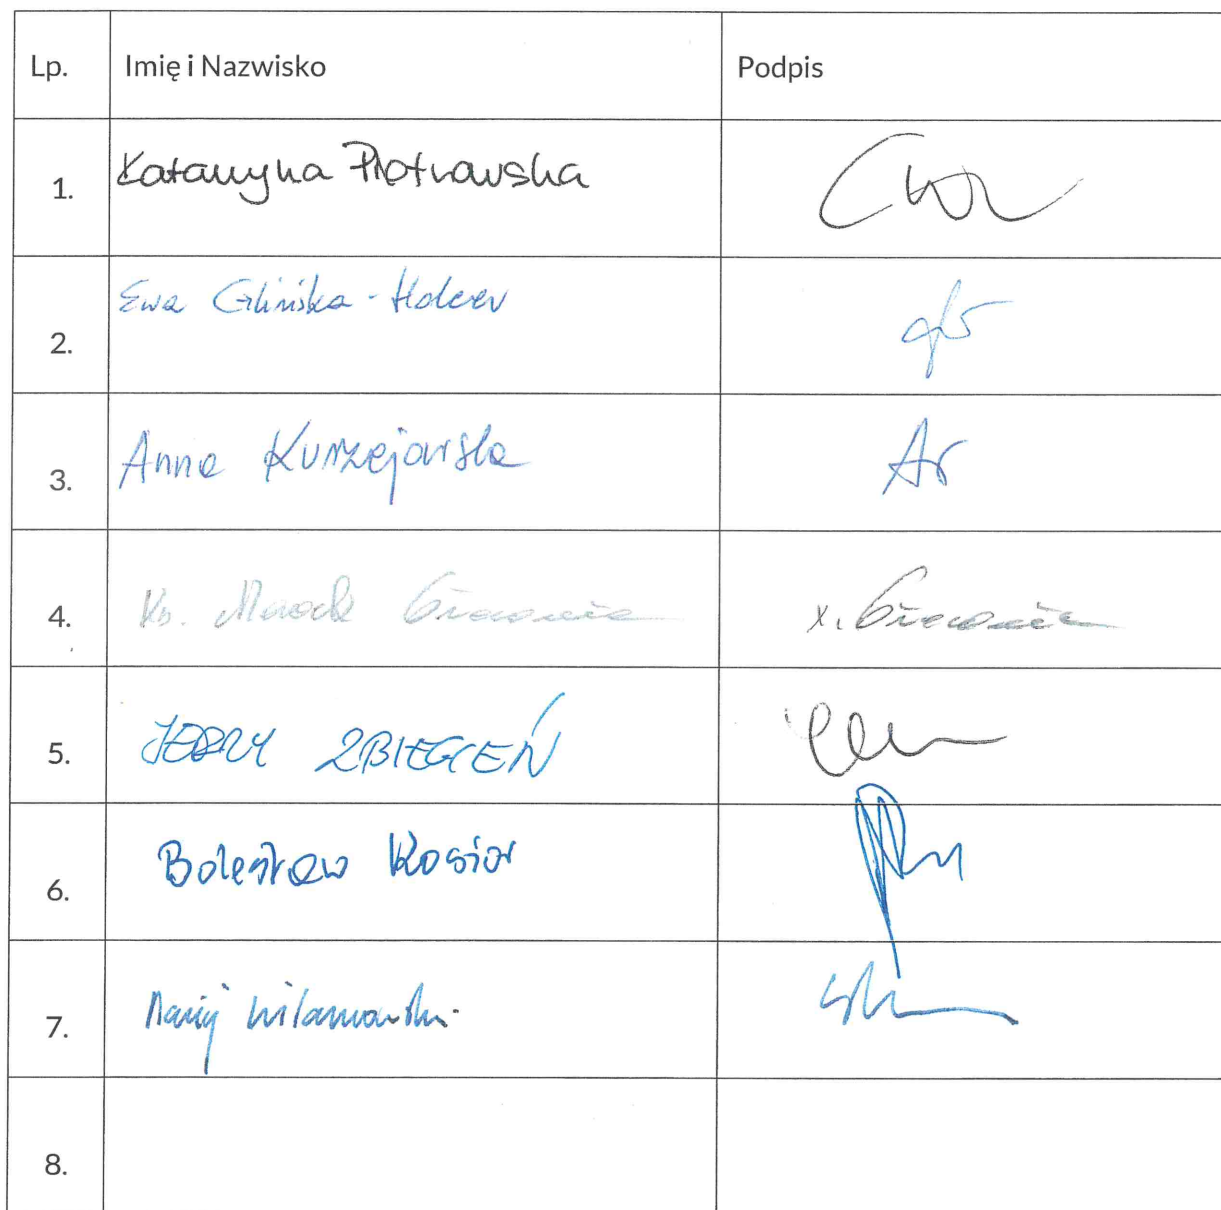 Lp. Imię i Nazwisko Podpis
1. Katarzyna Piotrowska
2. Ewa Glińska-Holcer
3. Anna Kurzejowska
4. Ks. Marek
5. JERZY ZBIEGIEŃ
6. Bolesław Kosior
7. Maciej Wilamowski
8.